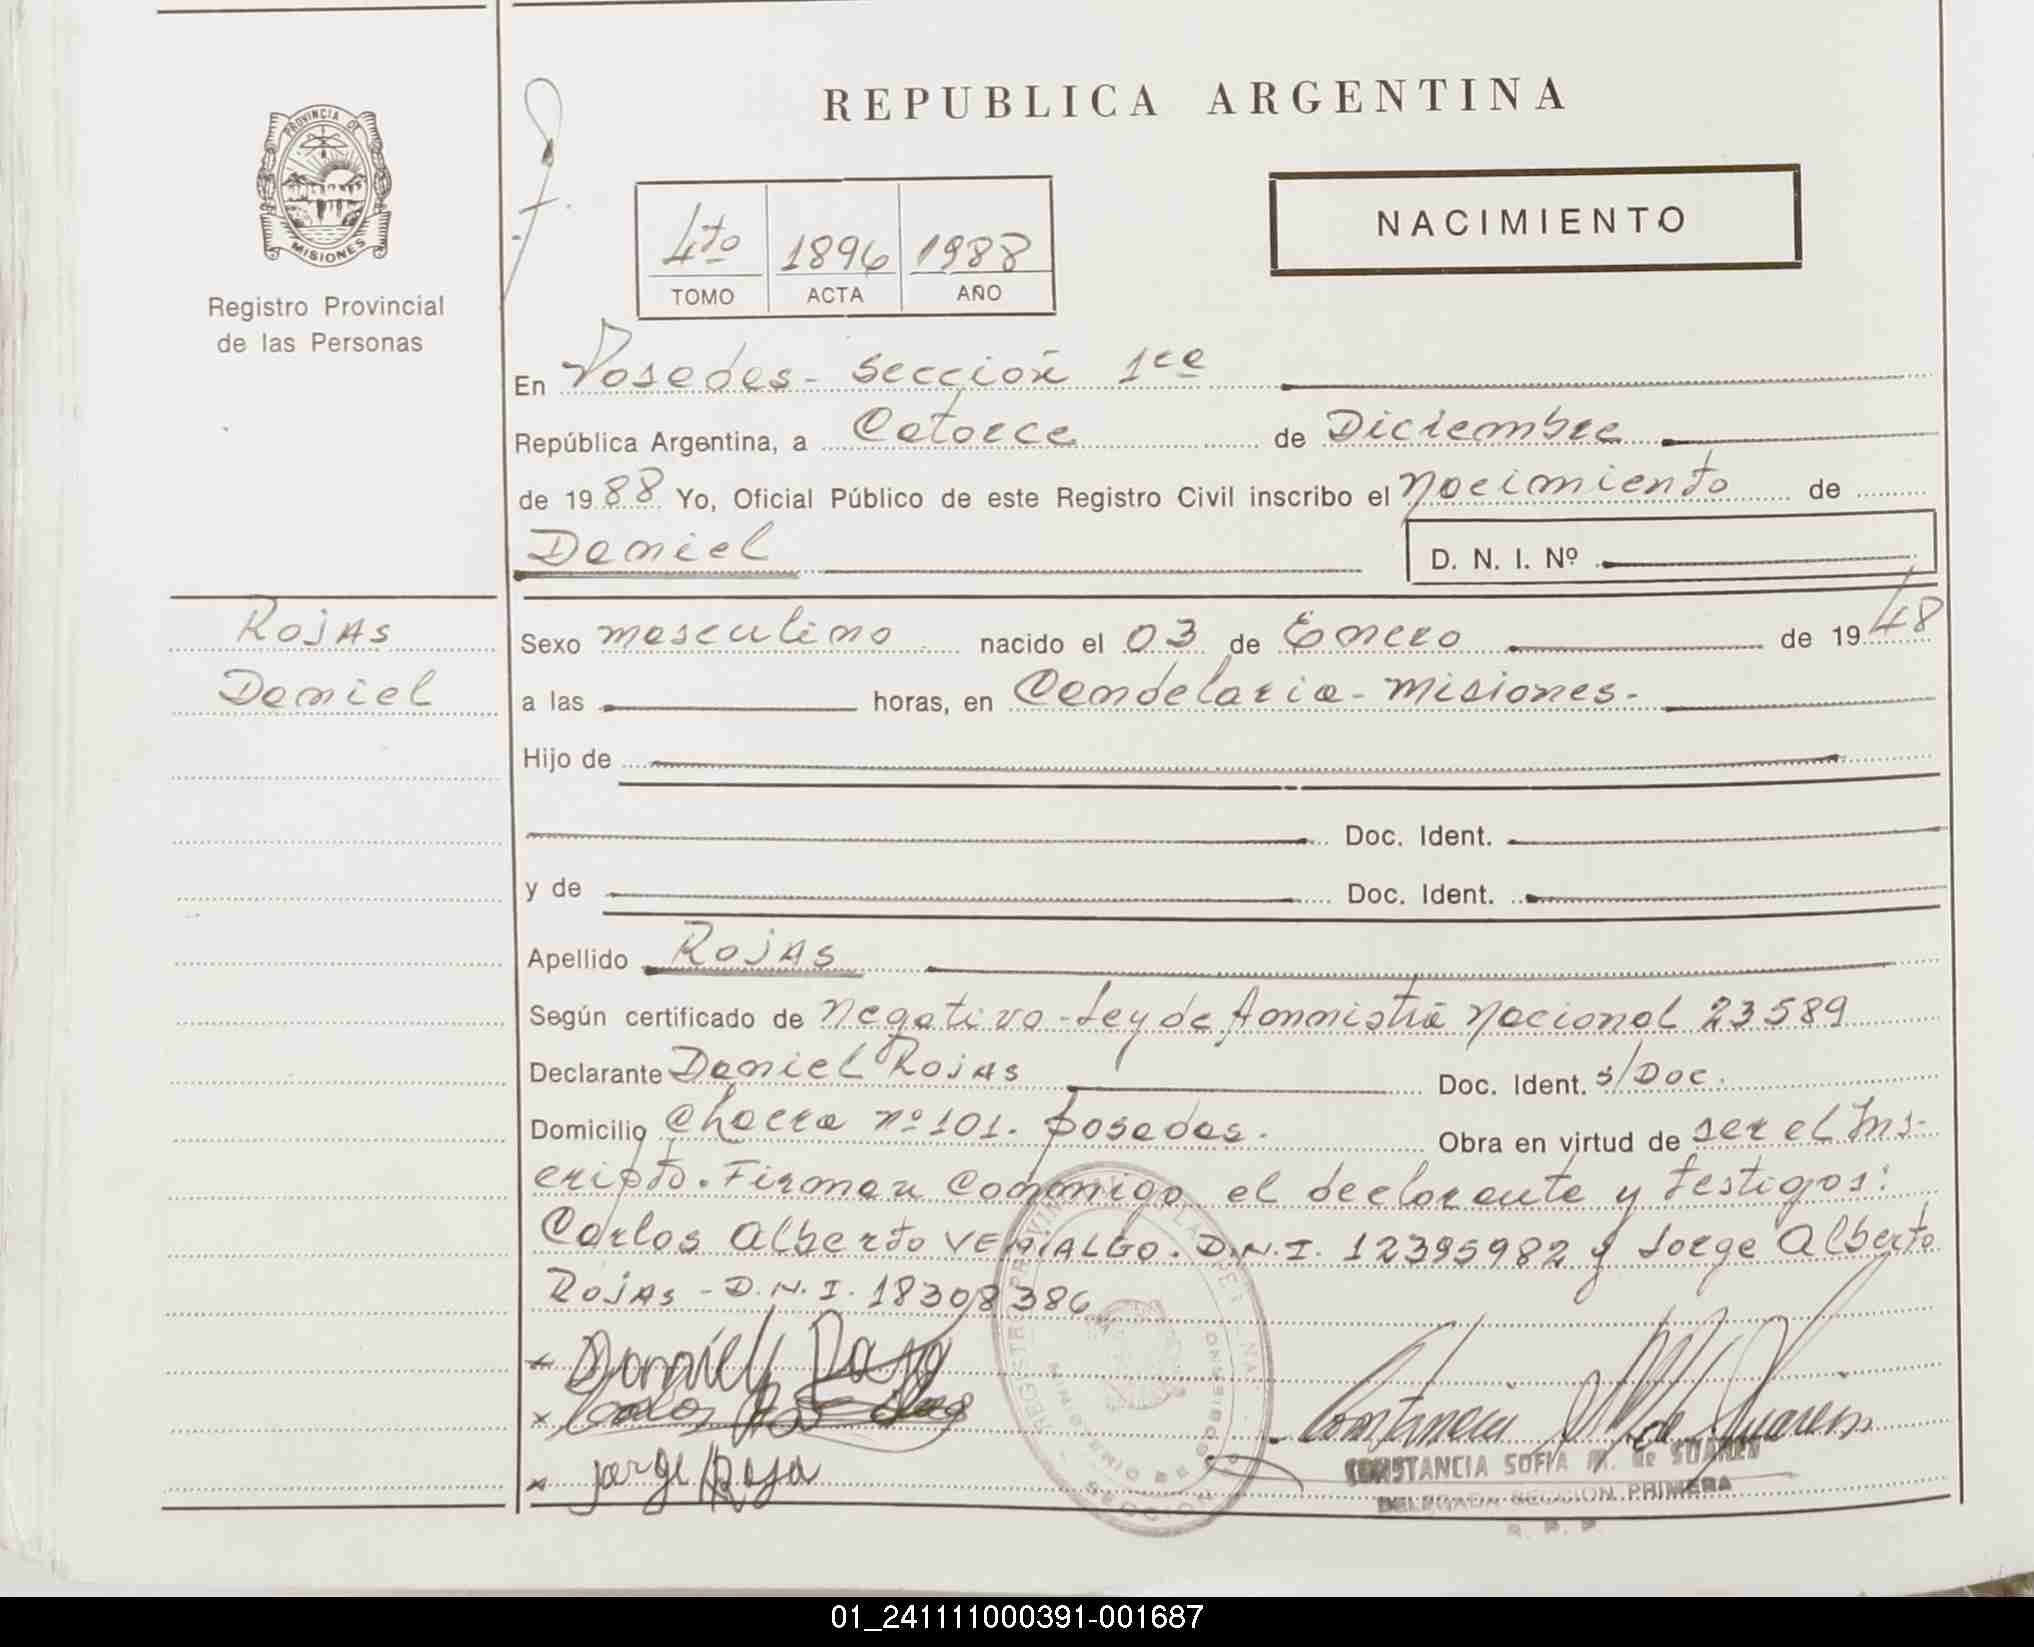 REPUBLICA ARGENTINA
PROVINCIA DE
MISIONES
Registro Provincial
de las Personas
4to 1896 1988
TOMO ACTA AÑO
NACIMIENTO
En Posadas - Sección 1ra
República Argentina, a Catorce de Diciembre
de 1988 Yo, Oficial Público de este Registro Civil inscribo el nacimiento de
Daniel
D. N. I. Nº
Rojas
Daniel
Sexo masculino nacido el 03 de Enero de 1948
a las horas, en Candelaria - Misiones -
Hijo de
Doc. Ident.
y de Doc. Ident.
Apellido Rojas
Según certificado de Negativo - Ley de Amnistía Nacional 23589
Declarante Daniel Rojas Doc. Ident. s/Doc.
Domicilio Chacra nº 101. Posadas. Obra en virtud de ser el Ins-
cripto. Firman conmigo el declarante y testigos:
Carlos Alberto VERIALGO. D.N.I. 12395982 y Jorge Alberto
Rojas - D.N.I. 18308386
Carlos
Jorge Roja
CONSTANCIA SOFIA M. de SUAREZ
DELEGADA SECCION PRIMERA
01_241111000391-001687